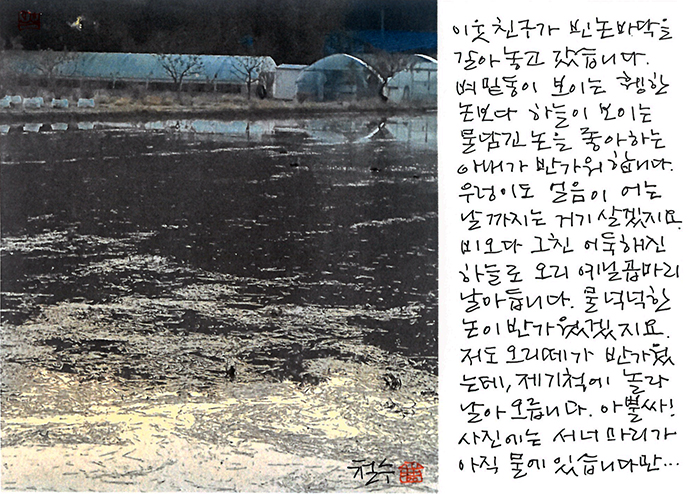 이웃 친구가 빈 논바닥을
갈아놓고 갔습니다.
벼 밑동이 보이는 휑한
논보다 하늘이 보이는
물담긴 논을 좋아하는
아내가 반가워 합니다.
우렁이도 얼음이 어는
날까지는 거기 살겠지요.
비오다 그친 어둑해진
하늘로 오리 예닐곱마리
날아듭니다. 물 넉넉한
논이 반가웠겠지요.
저도 오리떼가 반가웠
는데, 제기척에 놀라
날아 오릅니다. 아뿔싸!
사진에는 서너마리가
아직 물에 있습니다만...
철수